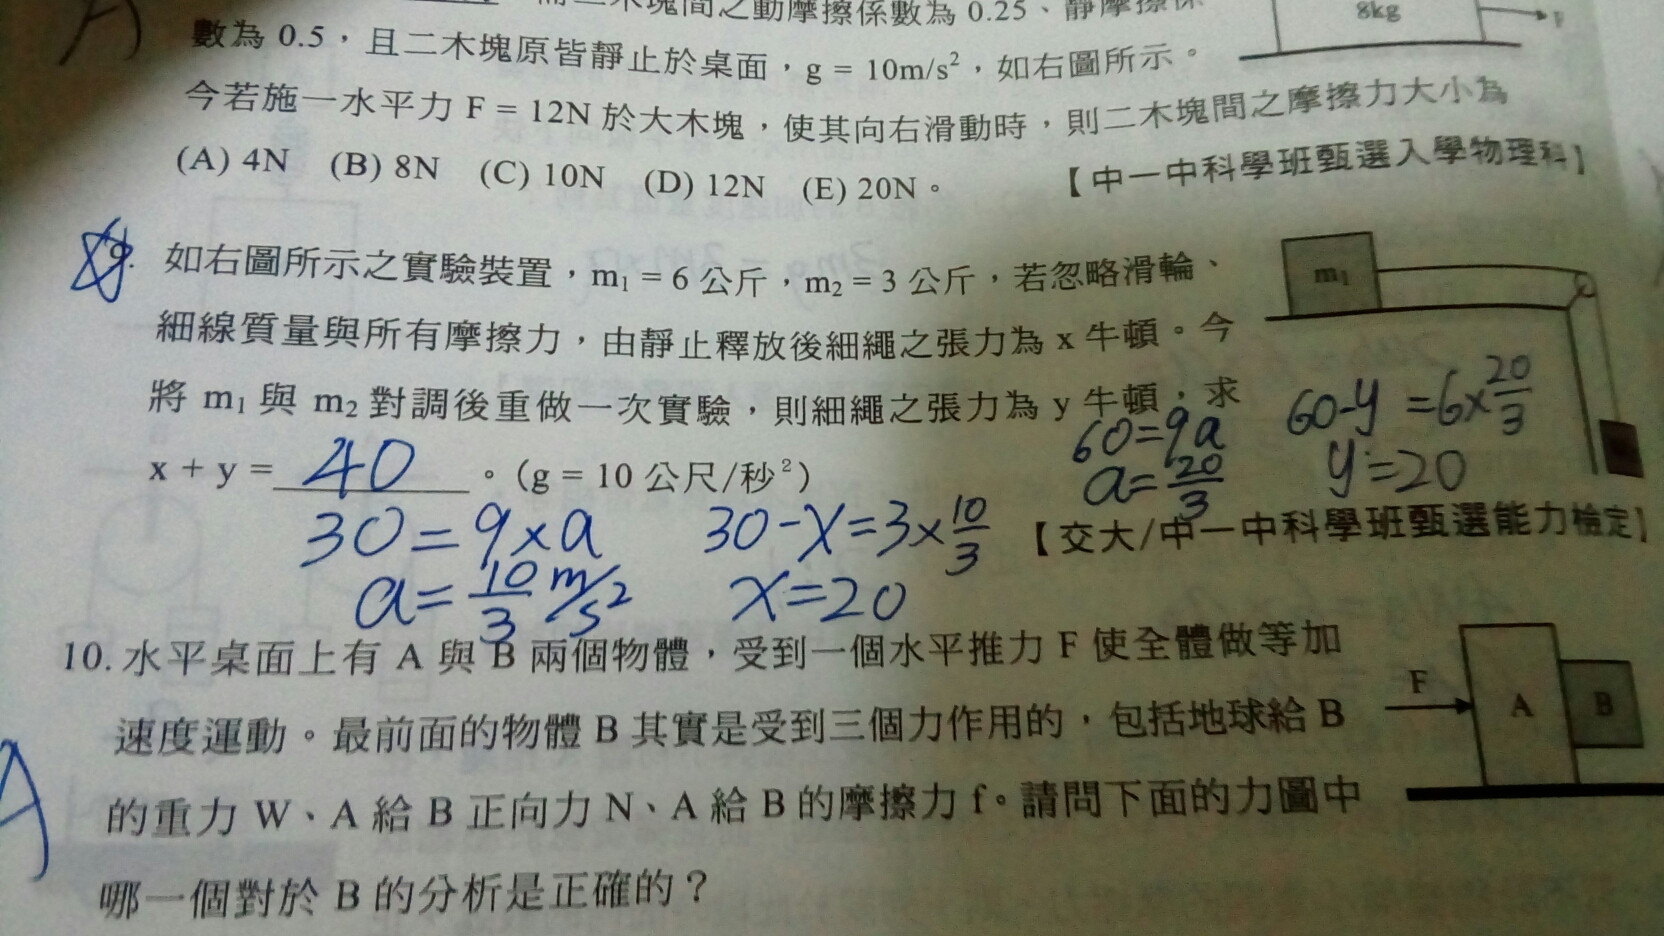 二木塊間之動摩擦係數為 0.25、靜摩擦係
8kg
F
數為 0.5，且二木塊原皆靜止於桌面，g = 10m/s²，如右圖所示。
今若施一水平力 F = 12N 於大木塊，使其向右滑動時，則二木塊間之摩擦力大小為
(A) 4N (B) 8N (C) 10N (D) 12N (E) 20N。
【中一中科學班甄選入學物理科】
A
9. 如右圖所示之實驗裝置，m₁ = 6 公斤，m₂ = 3 公斤，若忽略滑輪、
m₁
細線質量與所有摩擦力，由靜止釋放後細繩之張力為 x 牛頓。今
將 m₁ 與 m₂ 對調後重做一次實驗，則細繩之張力為 y 牛頓，求
60-y=6×20/3
60=9a
x + y = 40 。(g = 10 公尺/秒²)
a=20/3
y=20
30=9×a
30-x=3×10/3
【交大/中一中科學班甄選能力檢定】
a=10/3 m/s²
x=20
10. 水平桌面上有 A 與 B 兩個物體，受到一個水平推力 F 使全體做等加
F
A
B
速度運動。最前面的物體 B 其實是受到三個力作用的，包括地球給 B
A
的重力 W、A 給 B 正向力 N、A 給 B 的摩擦力 f。請問下面的力圖中
哪一個對於 B 的分析是正確的？